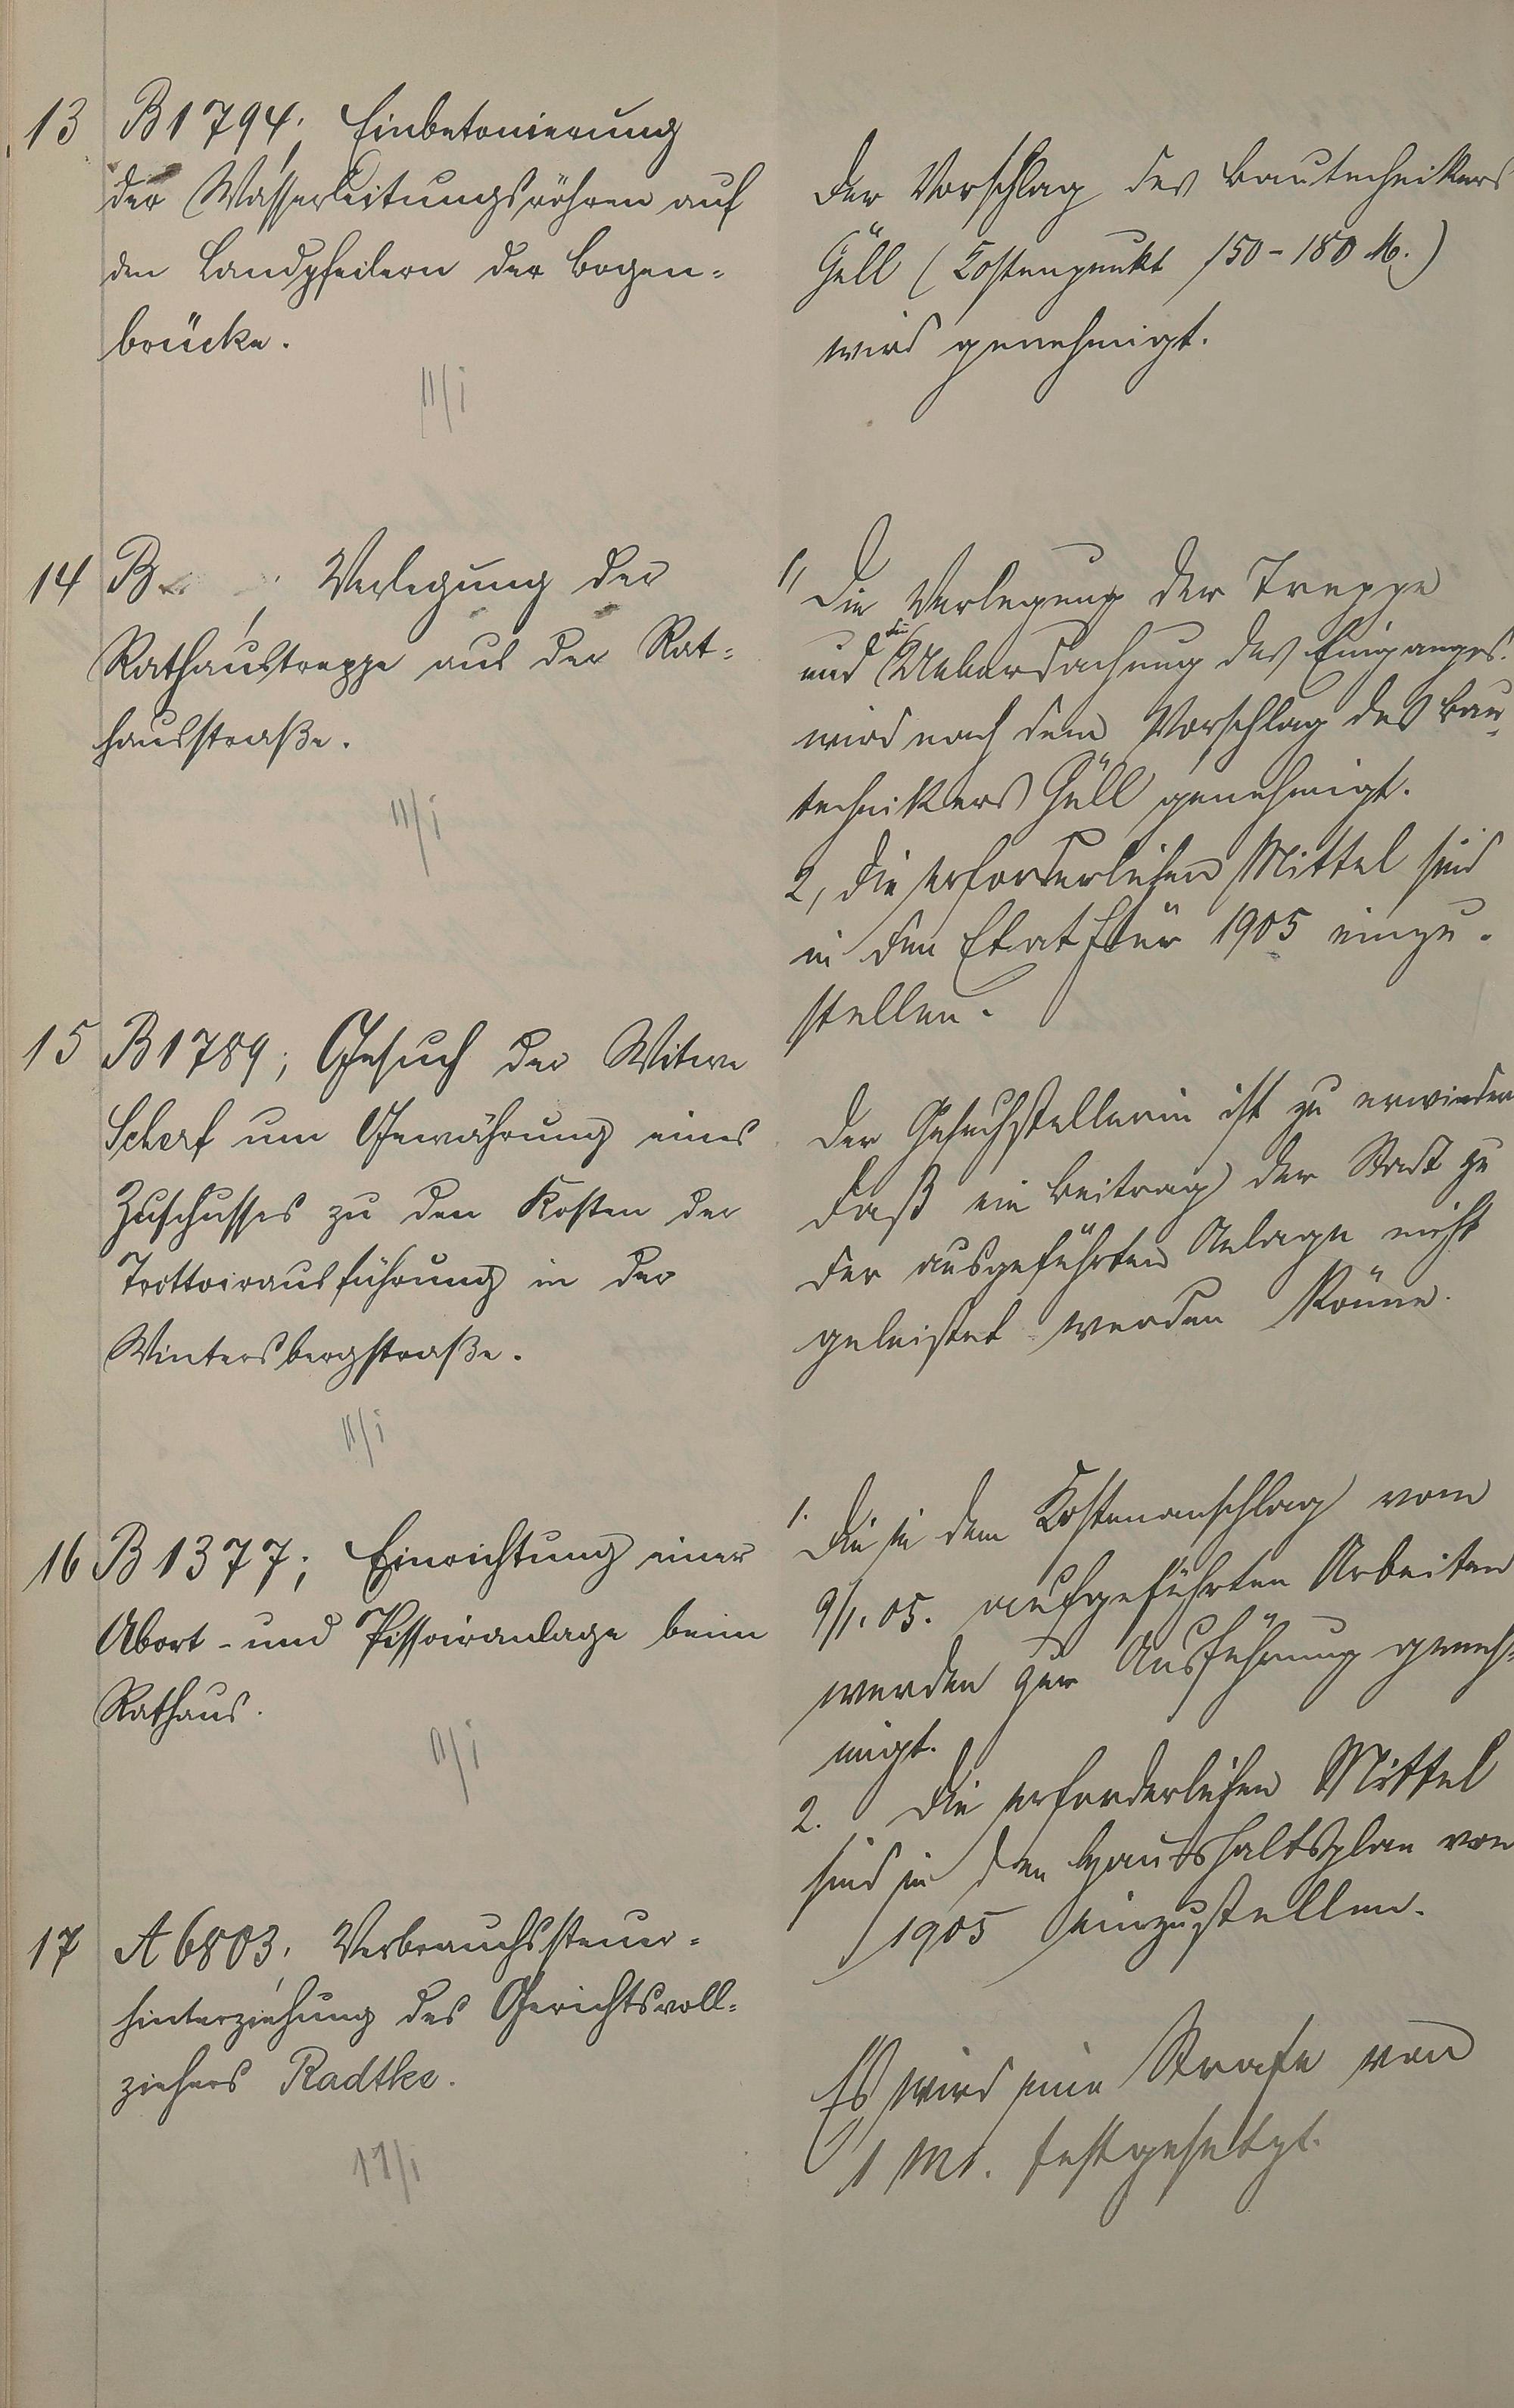 13 B 1794; Einbetonierung
der Wasserleitungsröhren auf
den Landpfeilern der Bogen=
brücke.
11/i
Der Vorschlag des Bautechnikers
Güll (Kostenpunkt 150-180 M.)
wird genehmigt.
14 B ; Verlegung der
Rathaustreppe aus der Rat=
hausstraße.
11/i
1, Die Verlegung der Treppe
und die Ueberdachung des Einganges
wird nach dem Vorschlag des Bau-
technikers Güll genehmigt.
2, Die erforderlichen Mittel sind
in den Etat für 1905 einzu-
stellen.
15 B 1789; Gesuch der Witwe
Scherf um Gewährung eines
Zuschusses zu den Kosten der
Trottoirausführung in der
Wintersbergstraße.
11/i
Der Gesuchstellerin ist zu erwidern
daß ein Beitrag der Stadt zu
der ausgeführten Anlage nicht
geleistet werden könne.
16 B 1377; Einrichtung einer
Abort- und Pissoiranlage beim
Rathaus.
11/i
1. Die in dem Kostenanschlag vom
9/1. 05. aufgeführten Arbeiten
werden zur Ausführung geneh-
migt.
2. Die erforderlichen Mittel
sind in den Haushaltsplan von
1905 einzustellen.
17 A 6803; Verbrauchssteuer=
hinterziehung des Gerichtsvoll=
ziehers Radtke.
11/i
Es wird eine Strafe von
1 M. festgesetzt.